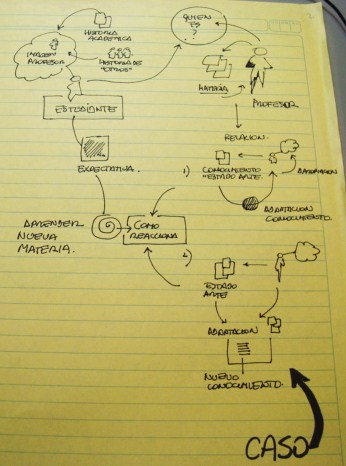 HISTORIA
ACADEMICA
QUIEN
ES
?
IMAGEN
PROFESOR
HISTORIA DE
"OTROS"
MATERIA
PROFESOR
ESTUDIANTE
RELACION.
EXPECTATIVA.
1)
CONOCIMIENTO
"ESTADO ARTE.
ADAPTACION
ADAPTACION
CONOCIMIENTO.
APRENDER
NUEVA
MATERIA.
COMO
REACCIONA
2)
ESTADO
ARTE
ADAPTACION
NUEVO
CONOCIMIENTO.
CASO